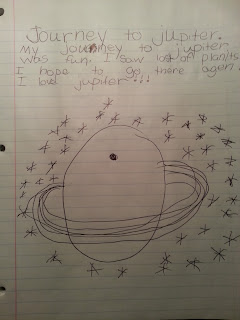 Journey to jupiter.
My journey to jupiter
was fun. I saw lost of planits
I hope to go there agen.
I love jupiter !!!